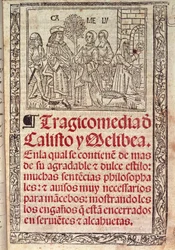 CA ME LV
¶ Tragicomedia d̄
Calisto y Melibea.
En la qual se contienē de mas
de su agradable & dulce estilo:
muchas sentēcias philosopha
les: & auisos muy necessarios
para mācebos: mostrando les
los engaños q̄ estā encerrados
en seruiētes & alcahuetas.